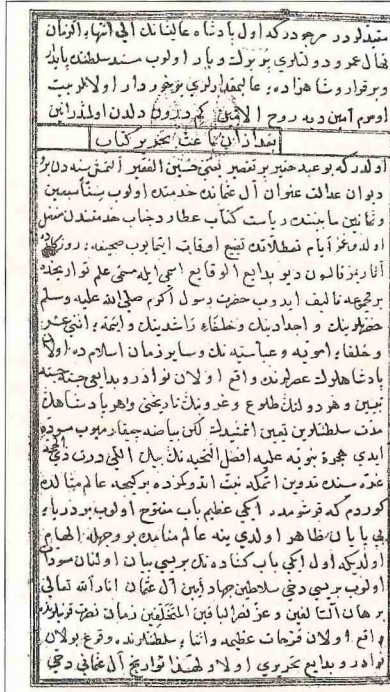 متعدلودر مرجودر كه اول پادشاه عاليشانك الى انتهاء الزمان
عمر و دولتلرى بر برك و يار اولوب مسند سلطنتك پايدار
وبرقرار و شاهزاده عاليمقدارلرى برخوردار اولالر بيت
اوقوم آمين ديه روح الامين كم درون دلدن اولنور
بعد از آن باعث تحرير كتاب
اولدر كه بو عبد حقير پر تقصير يعنى حسين الفقير التمش سنه دن
ديوان عدالت عنوان آل عثمانه خدمتده اولوب
ثمانين مابيننده رياست كتاب عطارد جناب خدمتندن
اولدوغمز ايام تضييع اوقات ايتميوب صحيفه روزكارده
آثارمز قالسون ديو بدايع الوقايع اسمى ايله مسمى علم تواريخده
بر مجموعه تاليف ايدوب حضرت رسول اكرم صلى الله عليه وسلم
حضرتلرينك و اجدادينك و خلفاء راشدينك و ائمه اثنى عشر
و خلفاء امويه و عباسيه نك و ساير زمان اسلامده اولان
پادشاهلرك عصرلرنده واقع اولان نوادر و بدايعى
تبيين و هر دولتك طلوع و غروبنك تاريخنى و هر پادشاهك
مدت سلطنتلرين تعيين ايتمشدك لكن بياضه چيقارميوب سوده
ايدى هجرة نبويه عليه افضل التحيه نك بيك اللى درت
سنه تدوين ايتمكه نيت ايدوكمزده بر كيجه عالم منامده
كوردم كه قرشومده ايكى عظيم باب مفتوح اولوب بر دريا
بى پايان ظاهر اولدى ينه عالم منامده بو وجهله الهام
اولديكه اول ايكى باب كشاده نك بريسى بيان اولنان سوداء
اولوب بريسى دخى سلاطين جهاد آيين آل عثمان انار الله تعالى
برهان السالفين و عز نصر الباقين المتخلفين زمان نصرت
واقع اولان فتوحات عظيمه و اثناء سلطنتلرنده وقوع بولان
نوادر و بدايع تحريرى اولا و لهذا تواريخ آل عثمانى دخى